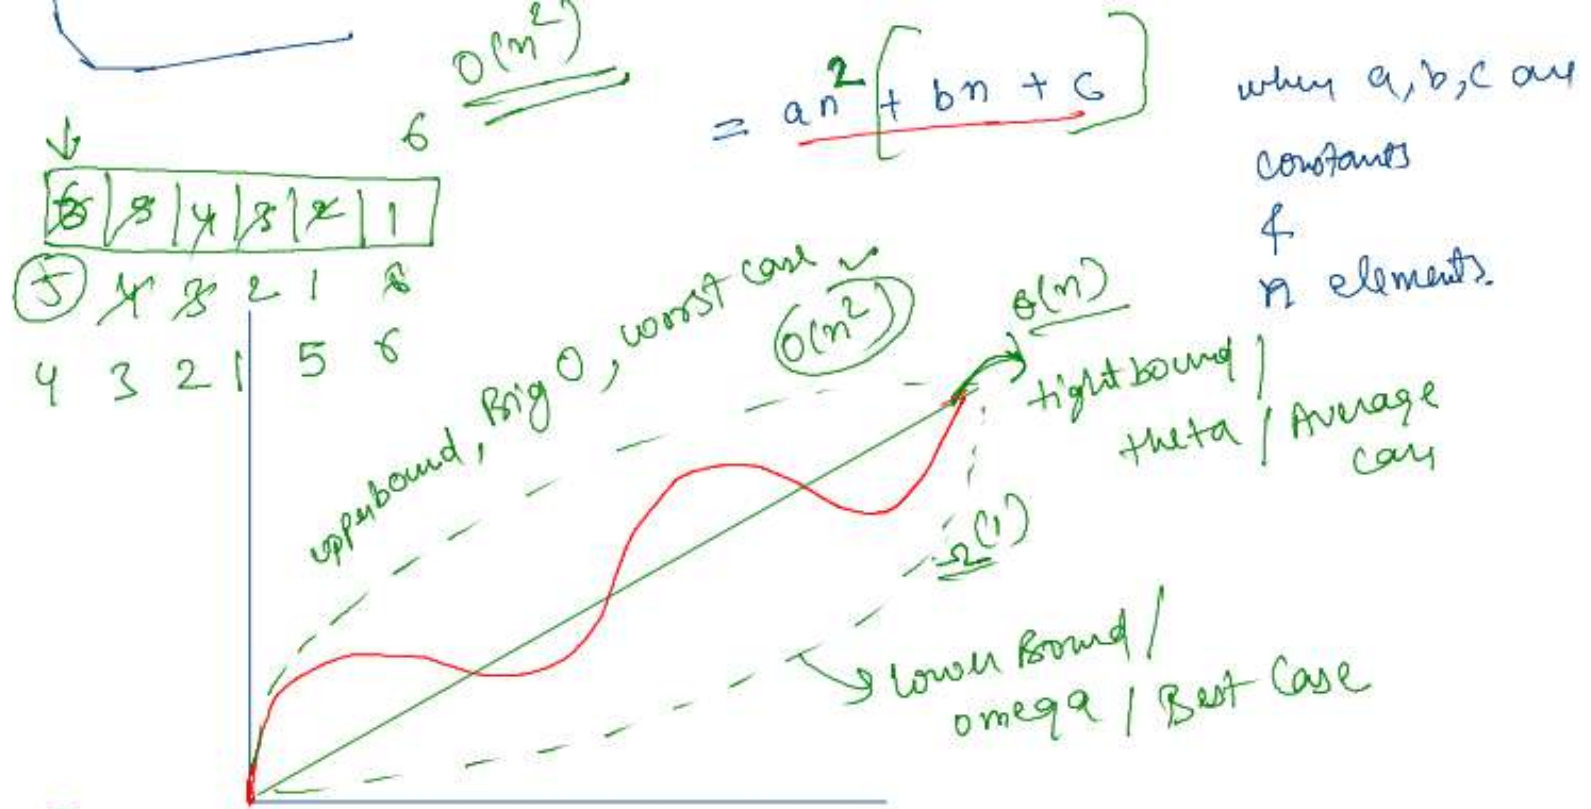 O(n²)
= an² [+ bn + c]
when a, b, c are
constants
&
n elements.
6
5 4 3 2 1
5 4 3 2 1 6
4 3 2 1 5 6
upperbound, Big O, worst case ✓
O(n²)
θ(n)
tight bound /
theta / Average
case
Ω(1)
lower Bound /
omega / Best Case